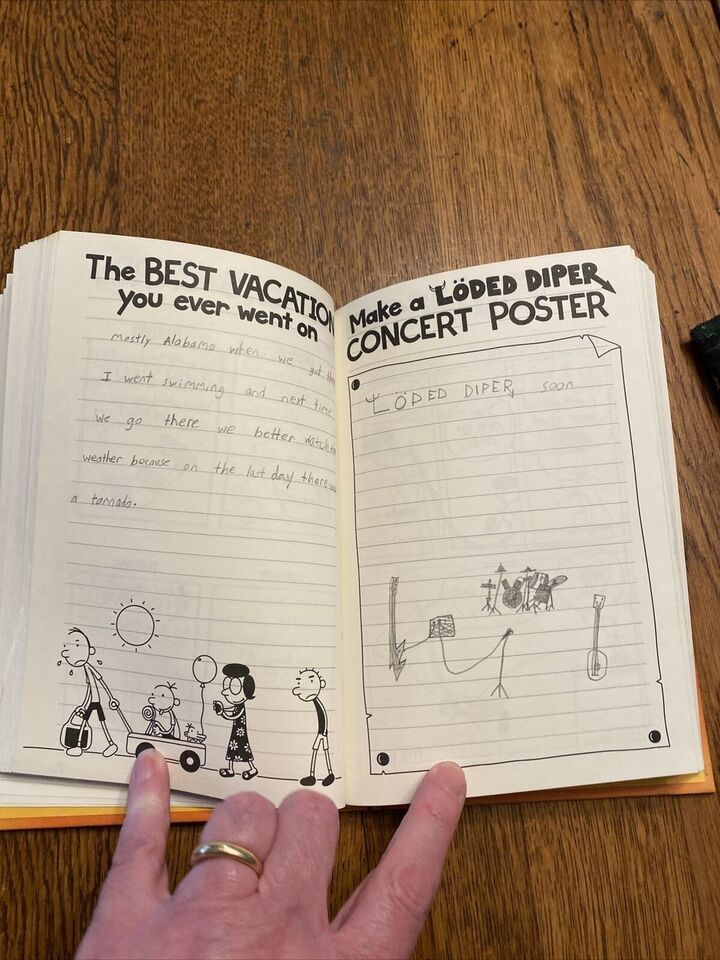 The BEST VACATION
you ever went on
mostly Alabama when we got
I went swimming and next time
we go there we better watch
weather because on the last day there
a tornado.
Make a LÖDED DIPER
CONCERT POSTER
LÖDED DIPER soon